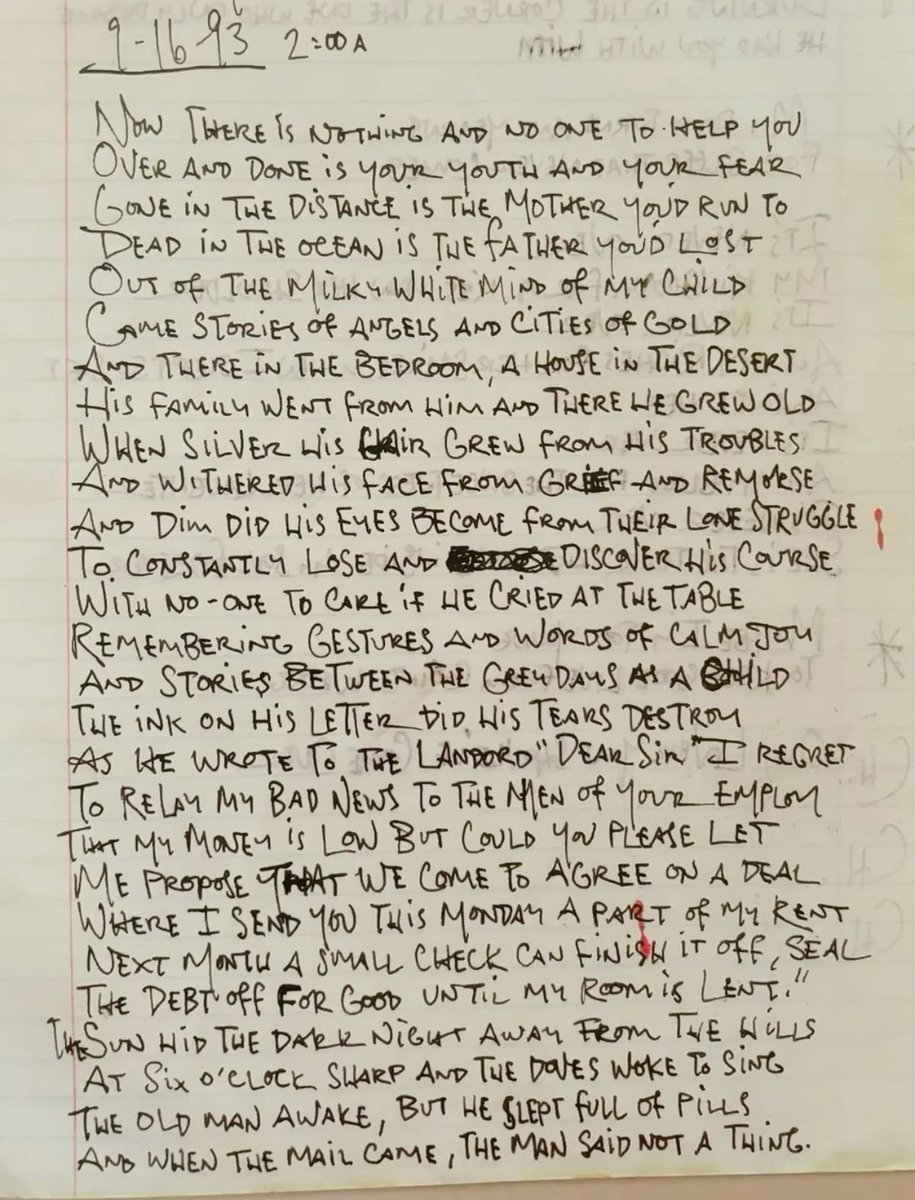 9-16-93 2:00A
NOW THERE IS NOTHING AND NO ONE TO HELP YOU
OVER AND DONE IS YOUR YOUTH AND YOUR FEAR
GONE IN THE DISTANCE IS THE MOTHER YOU'D RUN TO
DEAD IN THE OCEAN IS THE FATHER YOU'D LOST
OUT OF THE MILKY WHITE MIND OF MY CHILD
CAME STORIES OF ANGELS AND CITIES OF GOLD
AND THERE IN THE BEDROOM, A HOUSE IN THE DESERT
HIS FAMILY WENT FROM HIM AND THERE HE GREW OLD
WHEN SILVER HIS HAIR GREW FROM HIS TROUBLES
AND WITHERED HIS FACE FROM GRIEF AND REMORSE
AND DIM DID HIS EYES BECOME FROM THEIR LONE STRUGGLE
TO CONSTANTLY LOSE AND DISCOVER HIS COURSE
WITH NO-ONE TO CARE IF HE CRIED AT THE TABLE
REMEMBERING GESTURES AND WORDS OF CALM JOY
AND STORIES BETWEEN THE GREY DAYS AS A CHILD
THE INK ON HIS LETTER DID HIS TEARS DESTROY
AS HE WROTE TO THE LANDORD "DEAR SIR" I REGRET
TO RELAY MY BAD NEWS TO THE MEN OF YOUR EMPLOY
THAT MY MONEY IS LOW BUT COULD YOU PLEASE LET
ME PROPOSE THAT WE COME TO AGREE ON A DEAL
WHERE I SEND YOU THIS MONDAY A PART OF MY RENT
NEXT MONTH A SMALL CHECK CAN FINISH IT OFF, SEAL
THE DEBT OFF FOR GOOD UNTIL MY ROOM IS LENT."
THE SUN HID THE DARK NIGHT AWAY FROM THE HILLS
AT SIX O'CLOCK SHARP AND THE DOVES WOKE TO SING
THE OLD MAN AWAKE, BUT HE SLEPT FULL OF PILLS
AND WHEN THE MAIL CAME, THE MAN SAID NOT A THING.